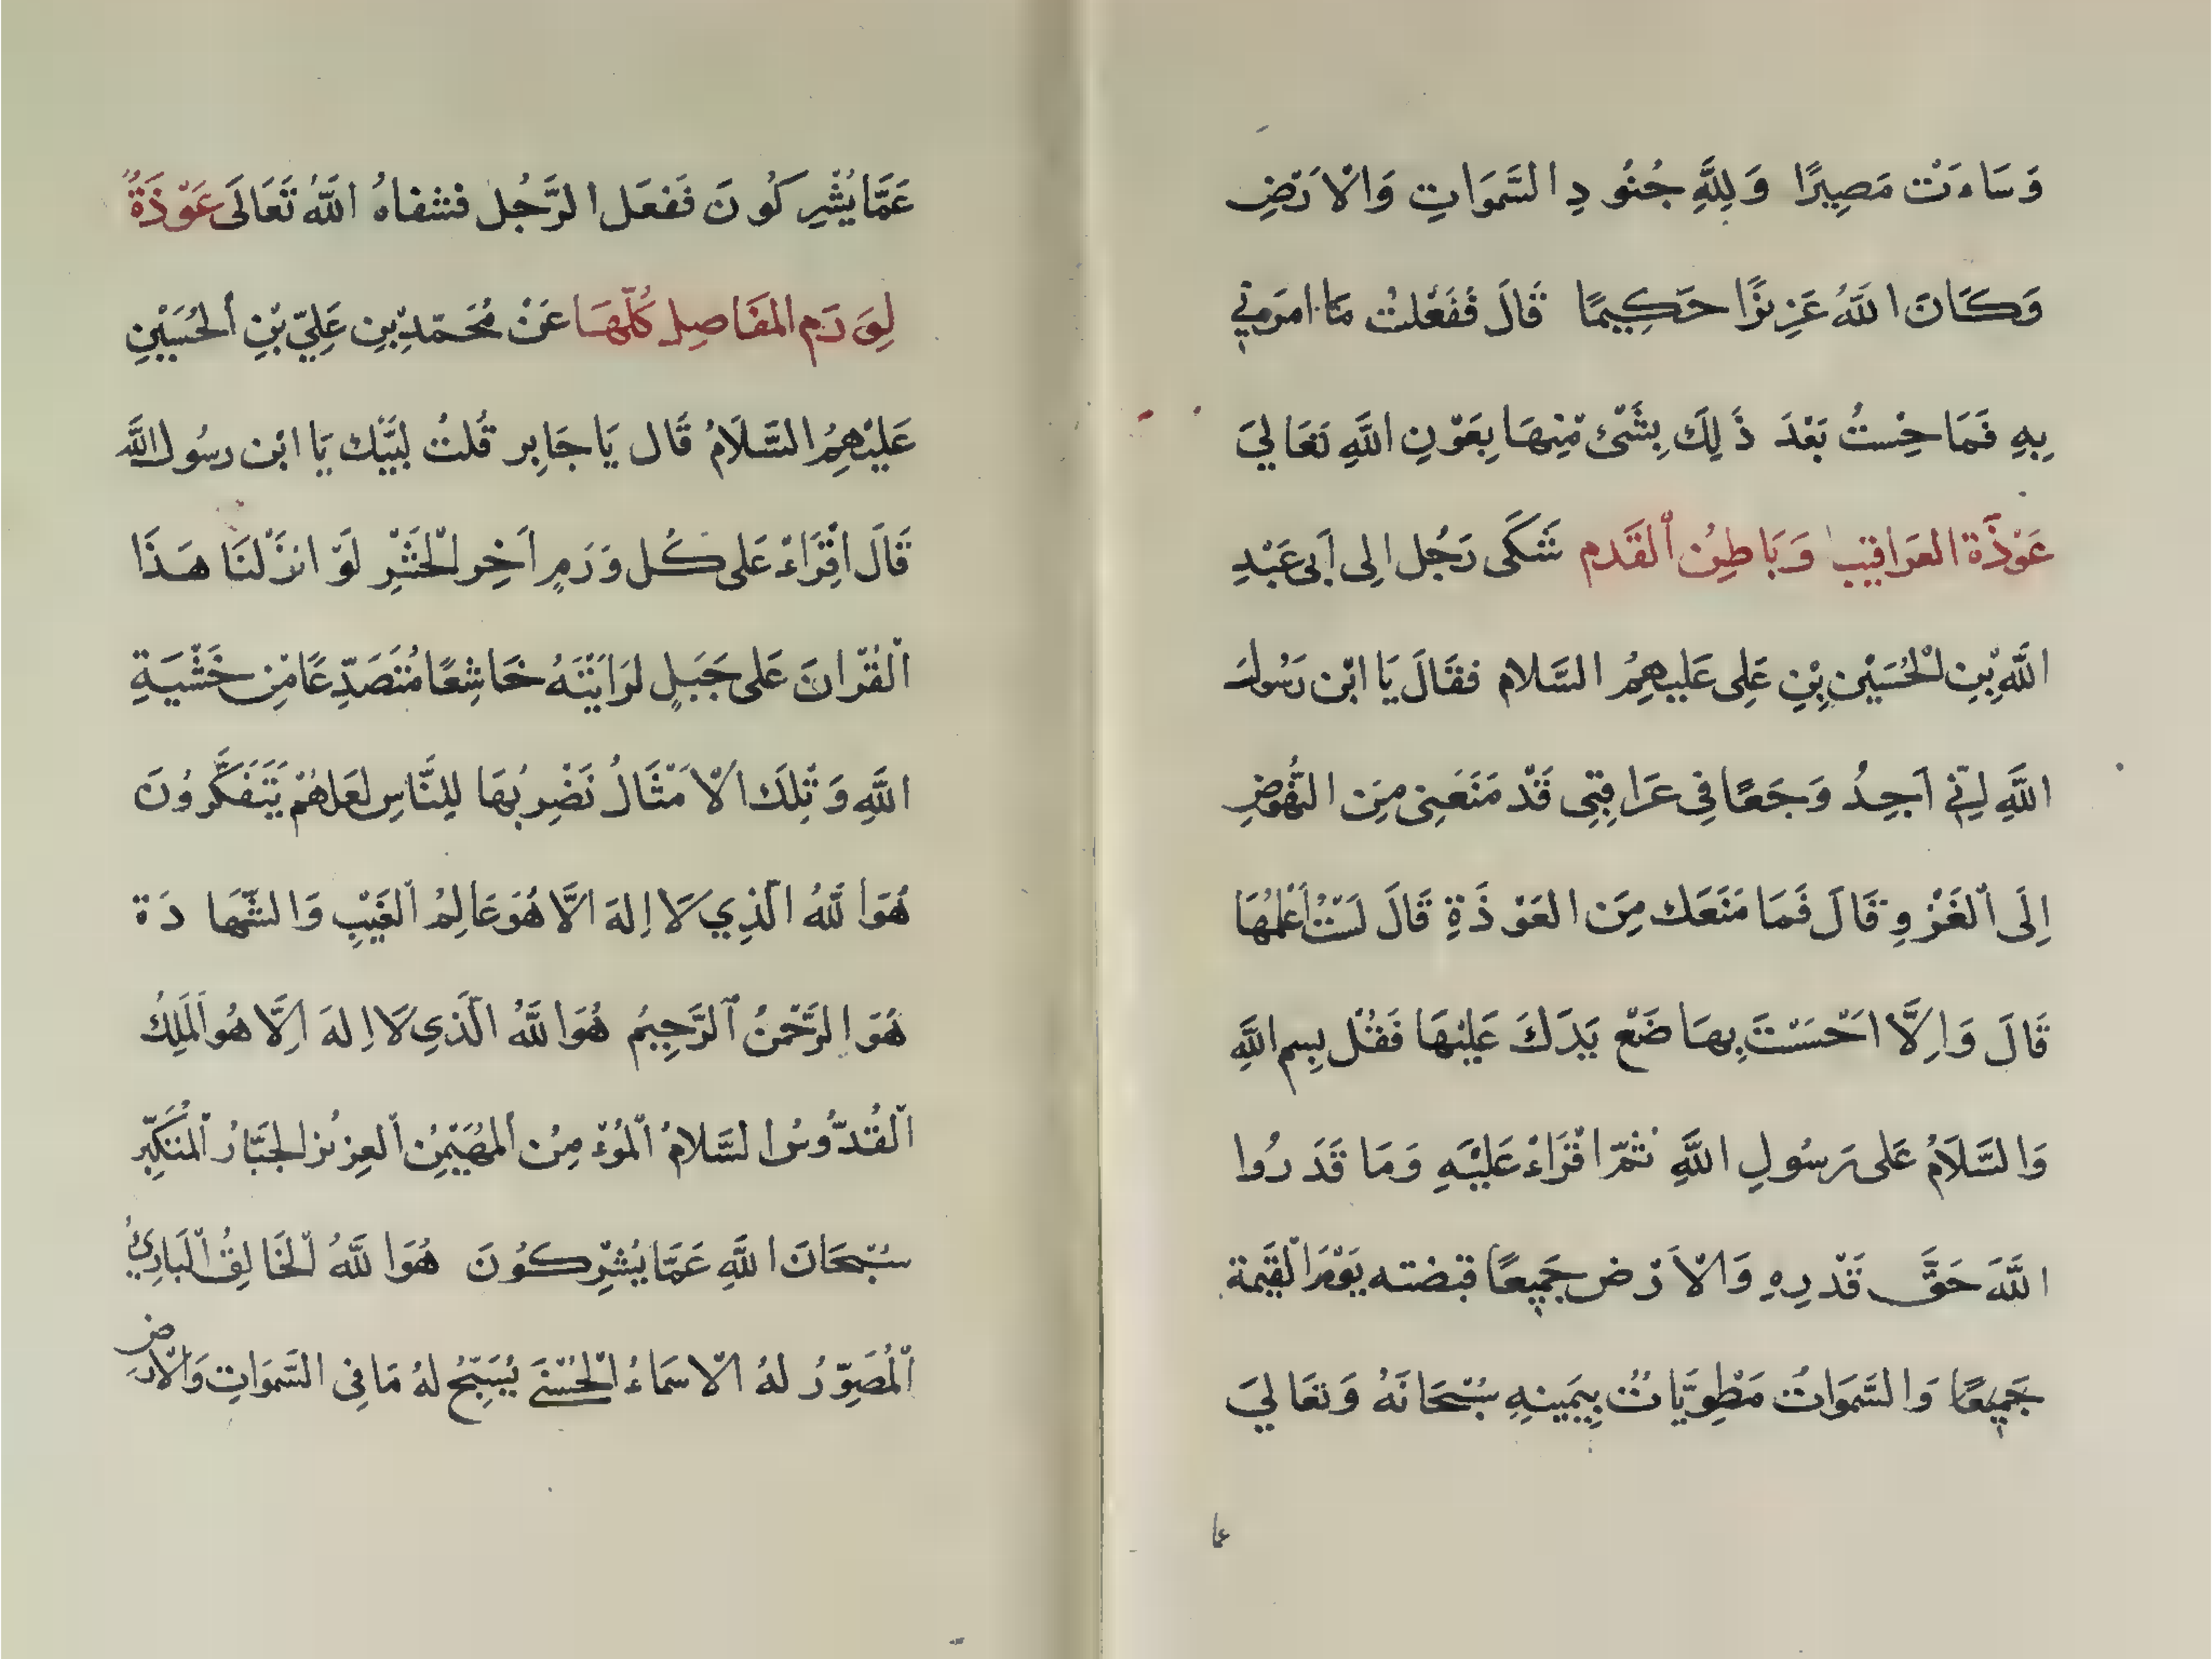 وَسَاءَتْ مَصِيرًا وَلِلَّهِ جُنُودِ السَّمَوَاتِ وَالْاَرْضِ
وَكَانَ اللَّهُ عَزِيزًا حَكِيمًا قَالَ فَفَعَلْتُ مَا امَرَنِي
بِهِ فَمَا حِسْتُ بَعْدَ ذَلِكَ بِشَىْءٍ مِنْهَا بِعَوْنِ اللَّهِ تَعَالَي
عَوْذَة العَرَاقيب وَبَاطِنُ اَلقَدم شَكَى رَجُل الِى اَبى عَبْدِ
اللَّهِ بْنِ لْحُسَيْن بْنِ عَلِى عَلَيهِمُ السَّلام فقَالَ يَا ابْن رَسُولَ
اللَّهِ اِنّي اَجِدُ وَجَعًا فِى عَرَاقِبِى قَدْ مَنَعَنِى مِنَ النُّهُوضِ
اِلَى اْلغَزْوِ قَالَ فَمَا مَنَعَكَ مِنَ العَوْذَةِ قَالَ لَسْتُ اَعْلَمُهَا
قَالَ وَاِلَّا احْسَسْتَ بِهَا ضَعْ يَدَكَ عَلَيْهَا فَقُلْ بِسم اللَّهِ
وَالسَّلَامُ عَلى رَسُولِ اللَّهِ ثُمَّ اقْرَاءْ عَلَيْهِ وَمَا قَدَرُوا
اللَّهَ حَقَّ قَدْرِهِ وَالْاَرْض جَمِيعًا قبضته يَوْمَ الْقِيَمة
جَمِيعًا وَالسَّمَوَاتُ مَطْوِيَّاتُ بِيَمِينِهِ سُبْحَانَهُ وَتعَالَي
عما
عَمَّا يُشْرِكُونَ فَفعَل الرَّجُل فشفاهُ اللَّهُ تَعَالَى عَوْذَةُ
لِوَرَم المفَاصِل كُلّهَا عَنْ مُحَمّدِ بْنِ عَلِيّ بْنِ اْلحُسَيْنِ
عَلَيْهِمُ السَّلَامُ قَال يَا جَابِر قُلتُ لَبَّيْك يَا ابْن رسُول اللَّه
قَالَ اقْرَاءْ عَلى كُل وَرَمٍ اَخِر اْلحَشْرِ لَوْ انْزَلْنَا هَذَا
اْلقُرْانَ عَلى جَبَلٍ لَرَايْتَهُ خَاشِعًا مُتَصَدّعًا مْنِ خَشْيَةِ
اللَّهِ وَتِلكَ الْاَمْثَالُ نَضْرِبُهَا لِلنَّاسِ لعَلهُمْ يَتَفَكَّرُونَ
هُوَ اللَّهُ الّذِي لَا اِلهَ الَّا هُوَ عَالِمُ اْلغَيْبِ وَالشَّهَادَة
هُوَ الرَّحْمنُ اْلرَّحِيمُ هُوَ اللَّهُ الّذِي لَا اِلهَ اِلَّا هُو اَلمَلِكُ
اْلقُدُّوسُ السَّلامُ اْلمُوْءمِنُ اْلمُهَيْمِنُ اْلعزِيزُ الجَبَّارُ اْلمُتَكَبِّر
سُبْحَانَ اللَّهِ عَمَّا يُشْرِكُونَ هُوَ اللَّهُ اْلخَالِقُ اْلبَارِيُ
اْلمُصَوِّرُ لهُ الْاسَمَاءُ اْلحُسْنَى يُسَبِّحُ لهُ مَا فِى السَّمَوَاتِ وَالْاَرض